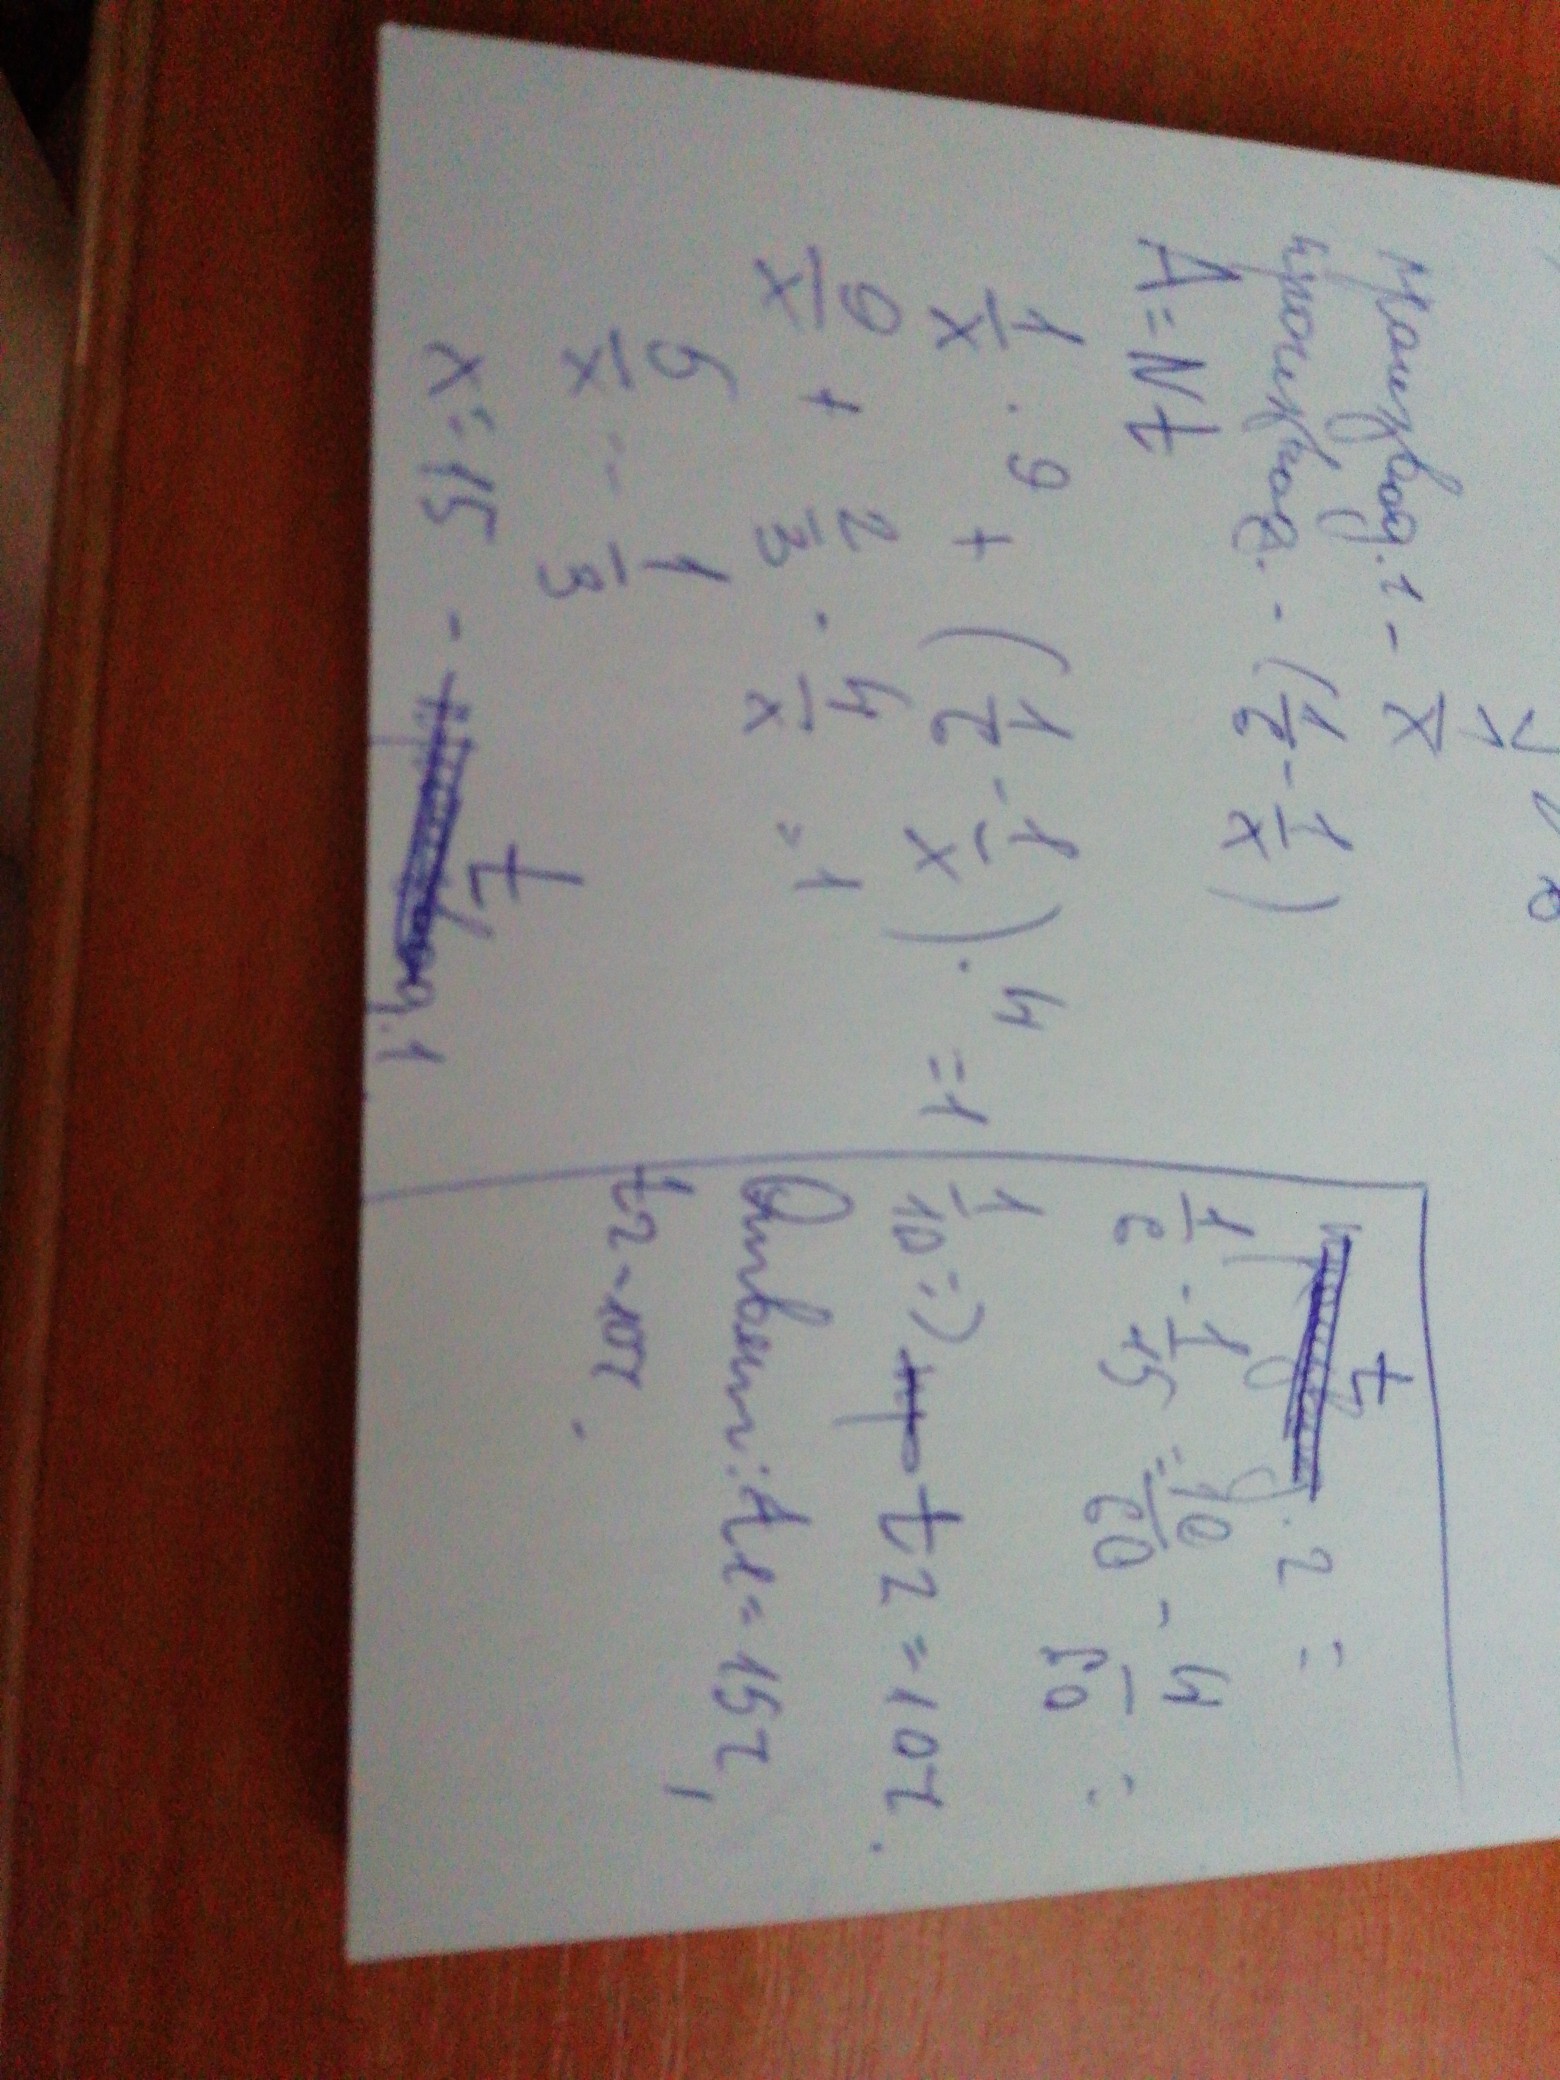 Производ. 1 - 1/x
производ. - (1/6 - 1/x)
A = Nt
1/x · 9 + (1/6 - 1/x) · 4 = 1
9/x + 2/3 · 4/x = 1
5/x = 1/3
x = 15 - t 1
t 2 =
1/6 - 1/15 = 10/60 - 4/60 =
1/10 => t2 = 10ч.
Ответ: t1 = 15ч,
t2 = 10ч.